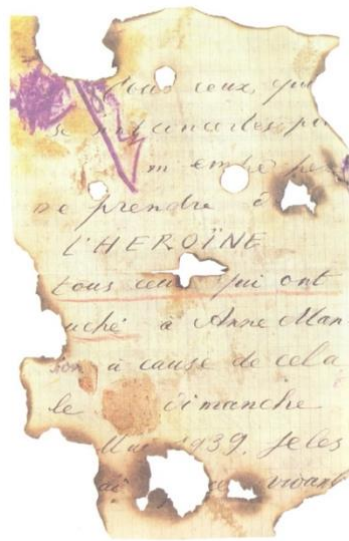 Tous ceux, qu
se sont concertés po
m empê
de prendre
L'HEROÏNE
tous ceux qui ont
uché à Anne Man
son à cause de cela
le dimanche
Mai 1939, je les
ai vivant